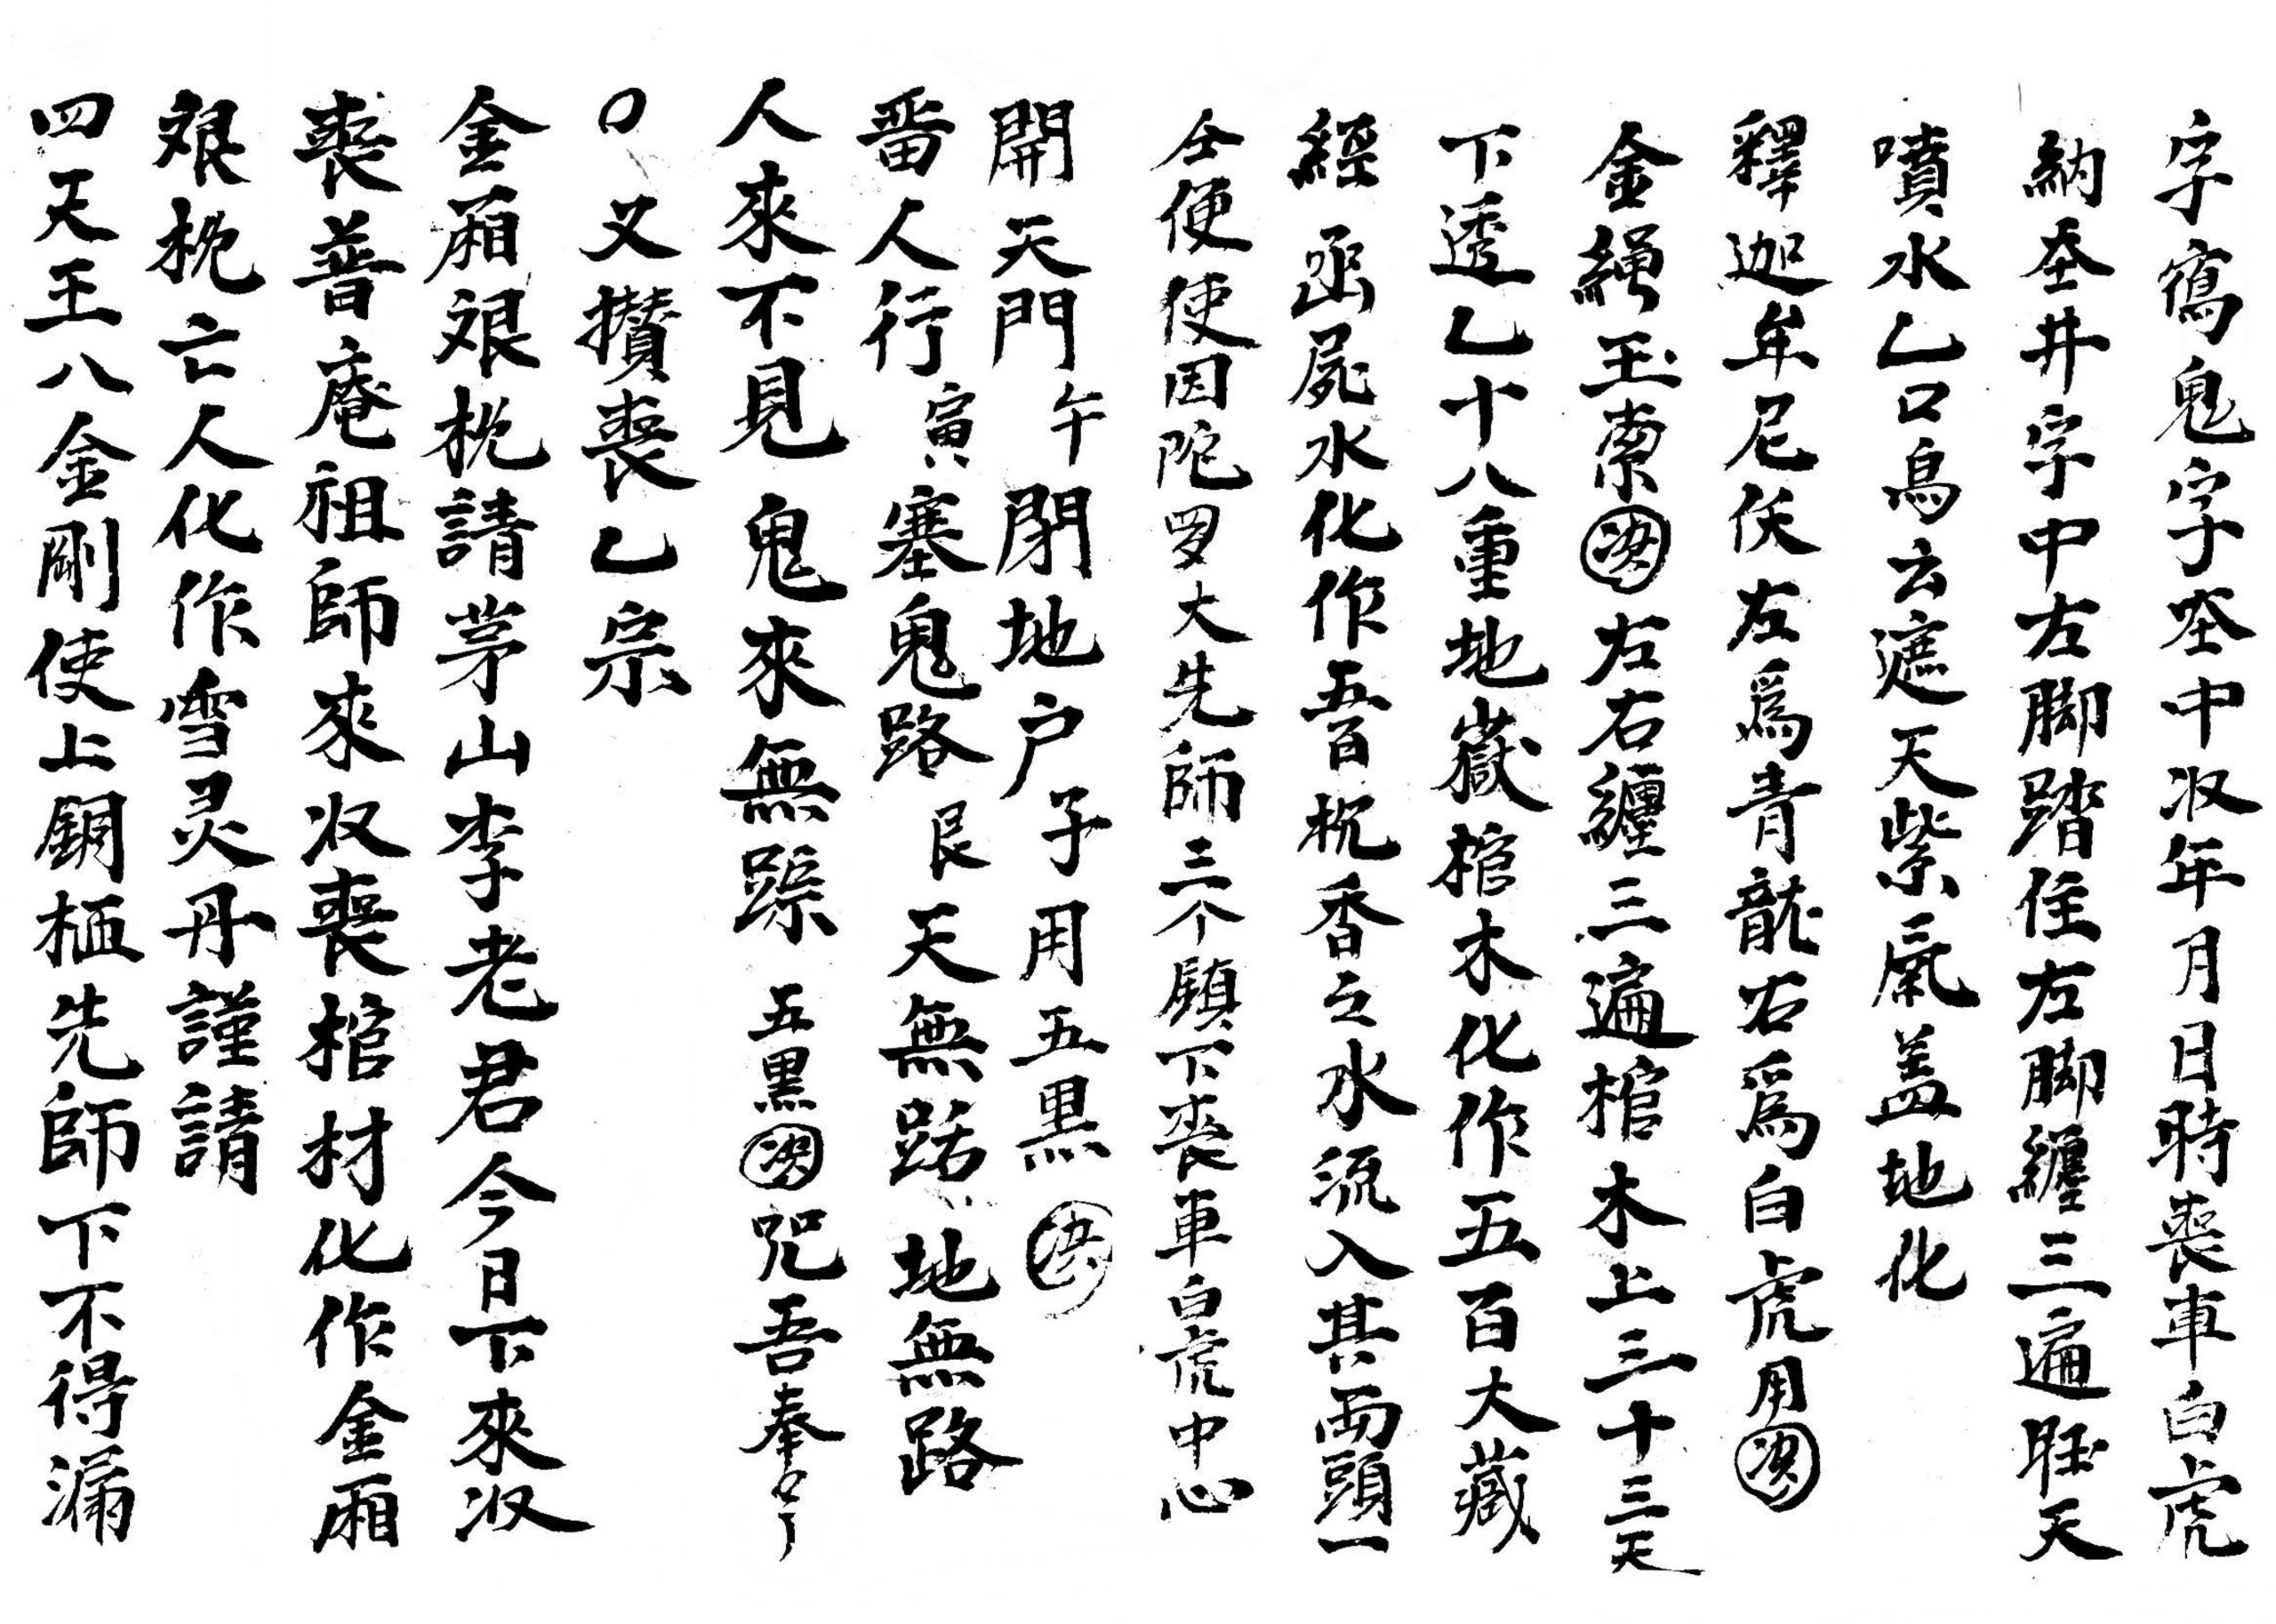 字寫鬼字在中収年月日時喪車白虎
納在井字中右脚踏住左脚纏三遍旺天
噴水乙口烏云遮天紫氣盖地化
釋迦牟尼佛左爲青龍右爲白虎用
金繩玉索左右纏三遍棺木上三十三天
下透乙十八重地嶽棺木化作五百大藏
經函屍水化作五百枕香之水流入其两頭一
仝便使因陀罗大先師三个願下喪車白虎中心
開天門午閉地户子用五黑
畨人行寅塞鬼路艮天無路地無路
人來不見鬼來無踪五黑咒吾奉
又攅喪乙宗
金廂银枕請茅山李老君今日下來収
喪普庵祖師來収喪棺材化作金廂
银枕亡人化作雪灵丹謹請
四天王八金剛使上銅栖先師下不得漏